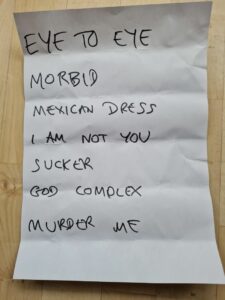 EYE TO EYE
MORBID
MEXICAN DRESS
I AM NOT YOU
SUCKER
GOD COMPLEX
MURDER ME